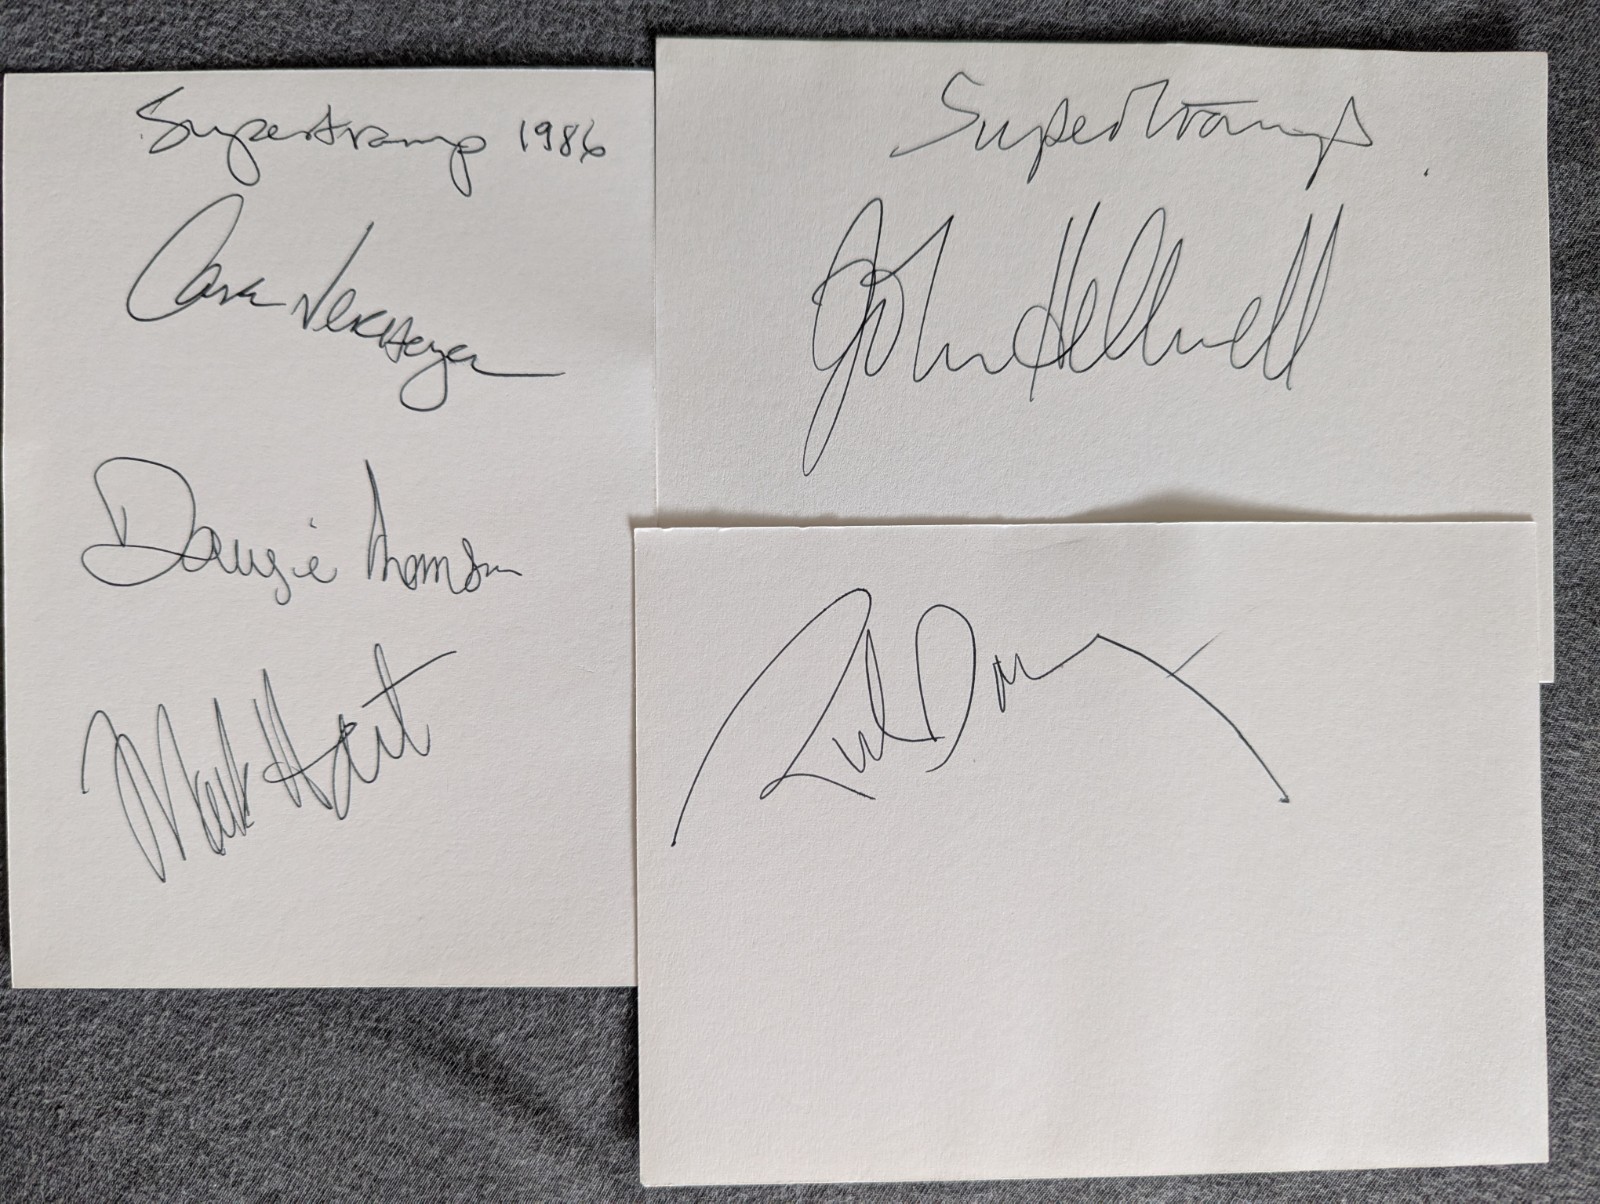 Supertramp 1986
Carl Verheyen
Dougie Thomson
Mark Hart
Supertramp
John Helliwell
Rick Davies